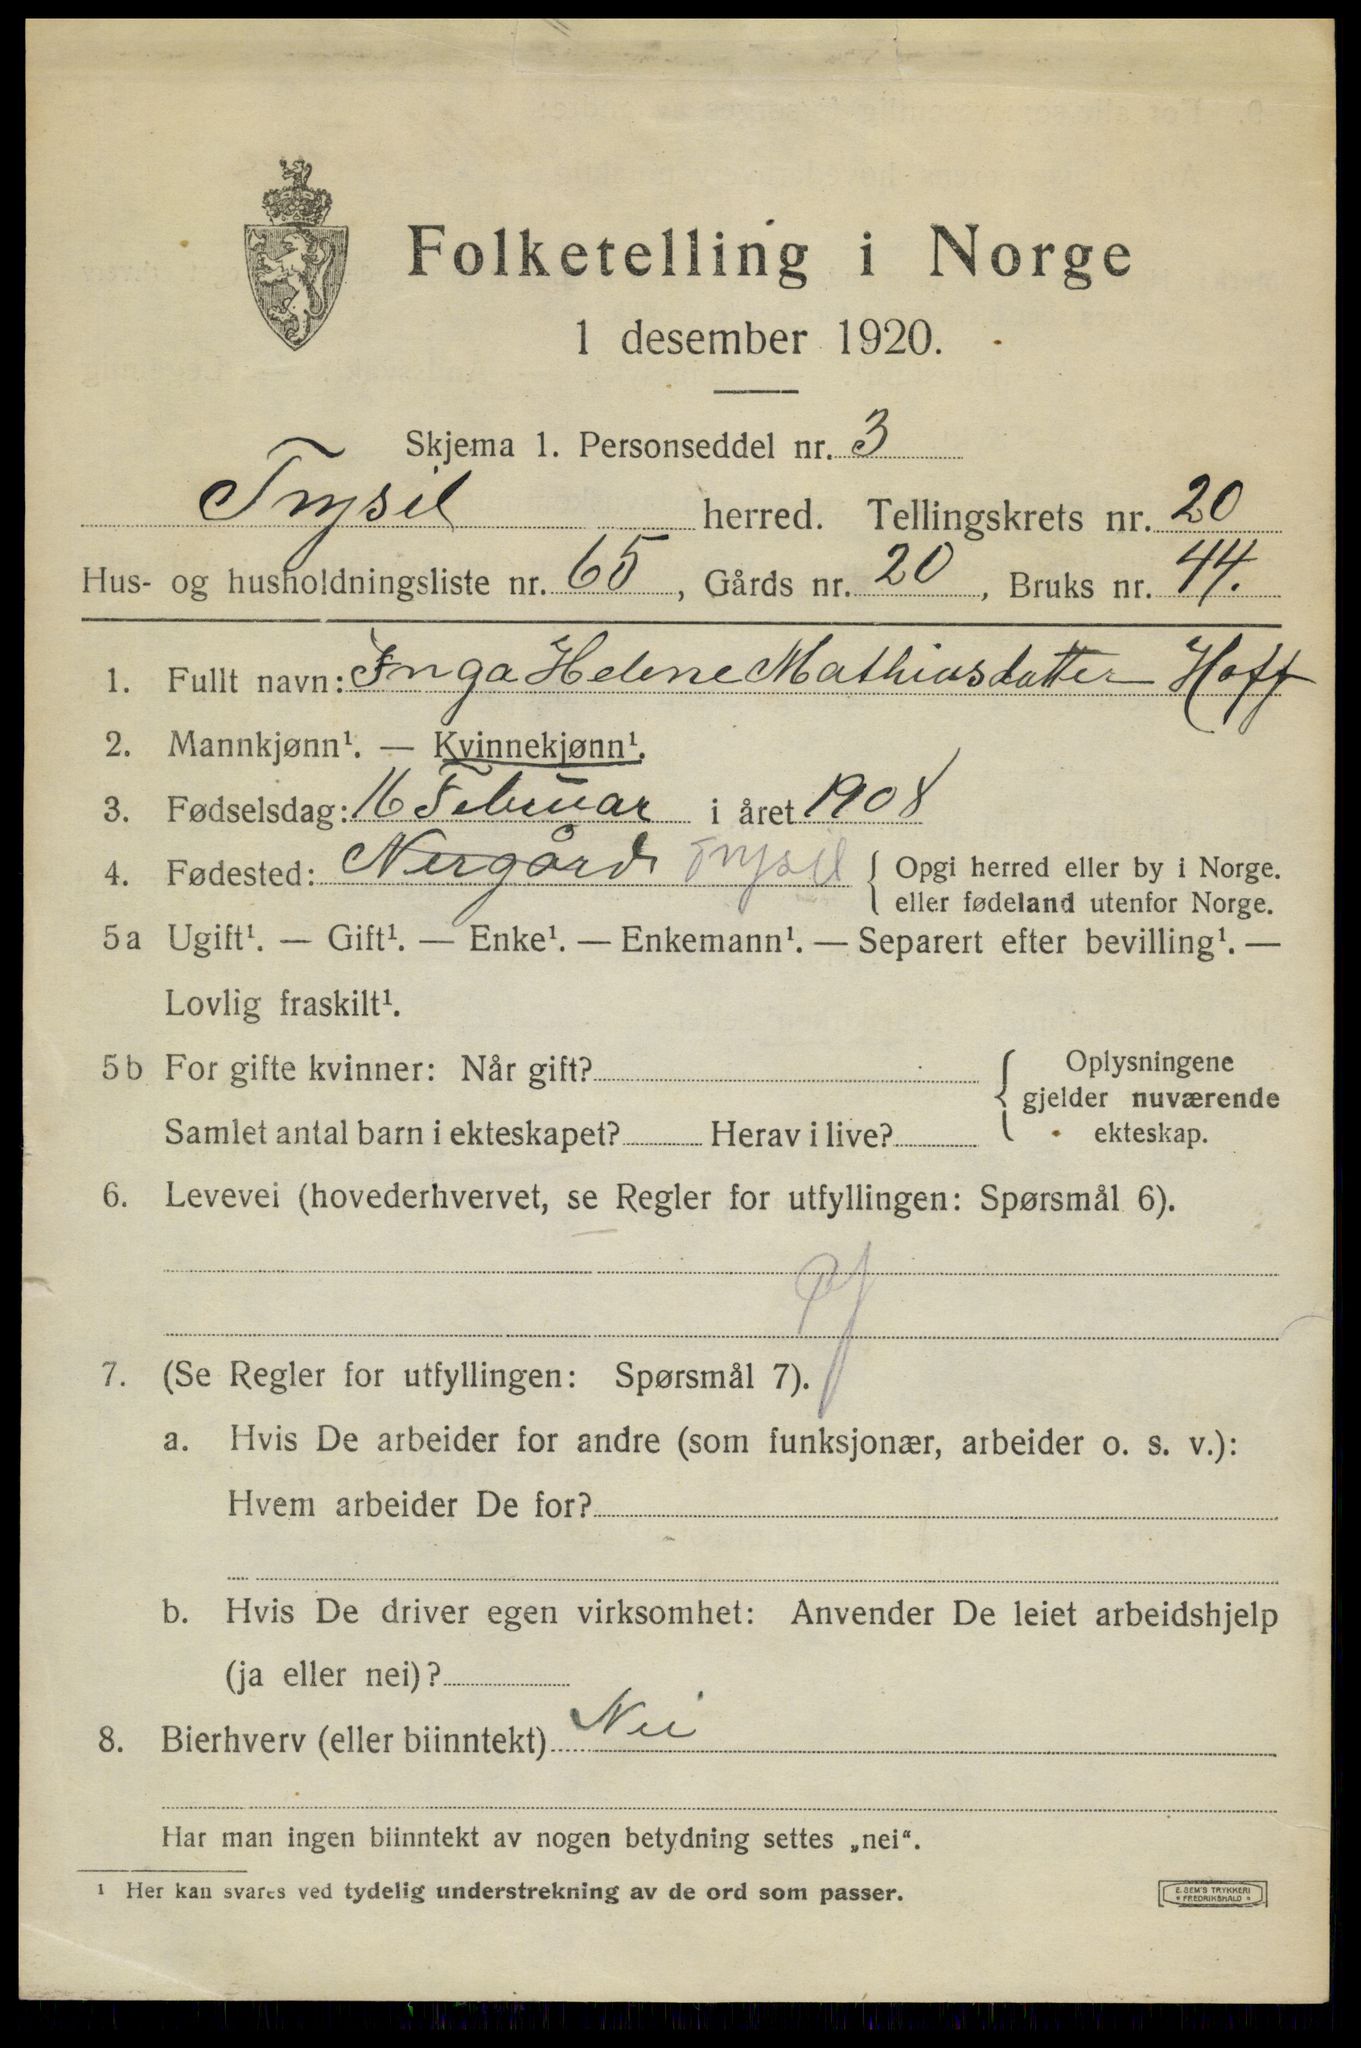 Folketelling i Norge
1 desember 1920.
Skjema 1. Personseddel nr. 3
Trysil herred. Tellingskrets nr. 20
Hus- og husholdningsliste nr. 65, Gårds nr. 20, Bruks nr. 44.
1. Fullt navn: Inga Helene Mathiasdatter Hoff
2. Mannkjønn¹. — Kvinnekjønn¹.
3. Fødselsdag: 16 Februar i året 1908
4. Fødested: Nergård Trysil { Opgi herred eller by i Norge.
eller fødeland utenfor Norge.
5a Ugift¹. — Gift¹. — Enke¹. — Enkemann¹. — Separert efter bevilling¹. —
Lovlig fraskilt¹.
5b For gifte kvinner: Når gift? { Oplysningene
gjelder nuværende
Samlet antal barn i ekteskapet? Herav i live? ekteskap.
6. Levevei (hovederhvervet, se Regler for utfyllingen: Spørsmål 6).
7. (Se Regler for utfyllingen: Spørsmål 7).
a. Hvis De arbeider for andre (som funksjonær, arbeider o. s. v.):
Hvem arbeider De for?
b. Hvis De driver egen virksomhet: Anvender De leiet arbeidshjelp
(ja eller nei)?
8. Bierhverv (eller biinntekt) Nei
Har man ingen biinntekt av nogen betydning settes „nei“.
¹ Her kan svares ved tydelig understrekning av de ord som passer.
E. SEM'S TRYKKERI
FREDRIKSHALD